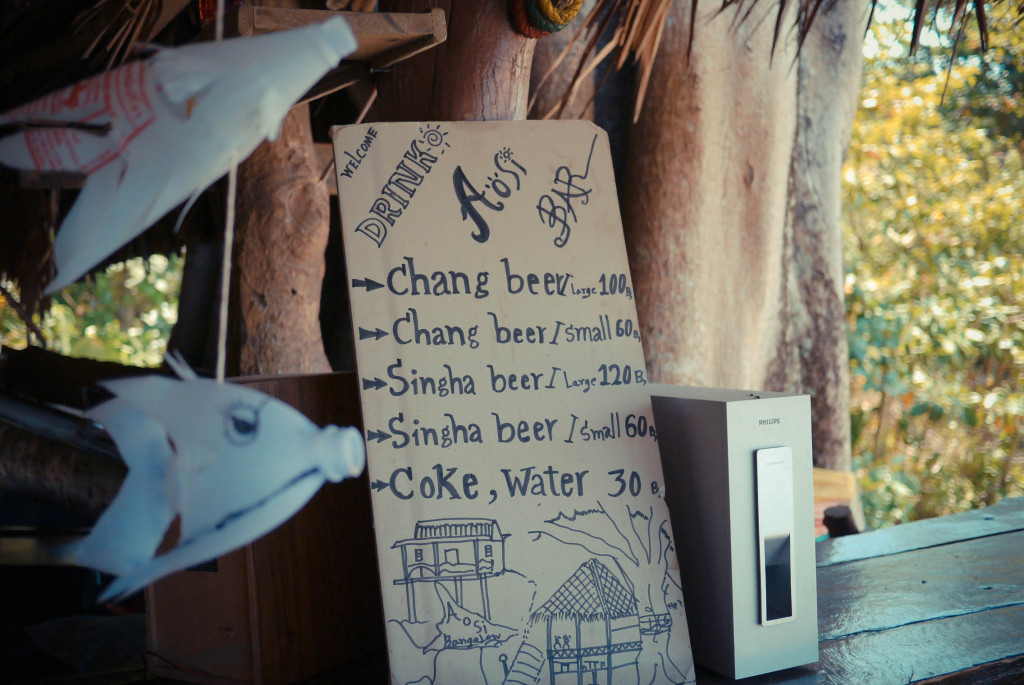 WELCOME
DRINK AOSI BAR
Chang beer/Large 100B
Chang beer/small 60B
Singha beer/Large 120B
Singha beer/small 60B
Coke, Water 30 B
AOSI
Bangalow
PHILIPS